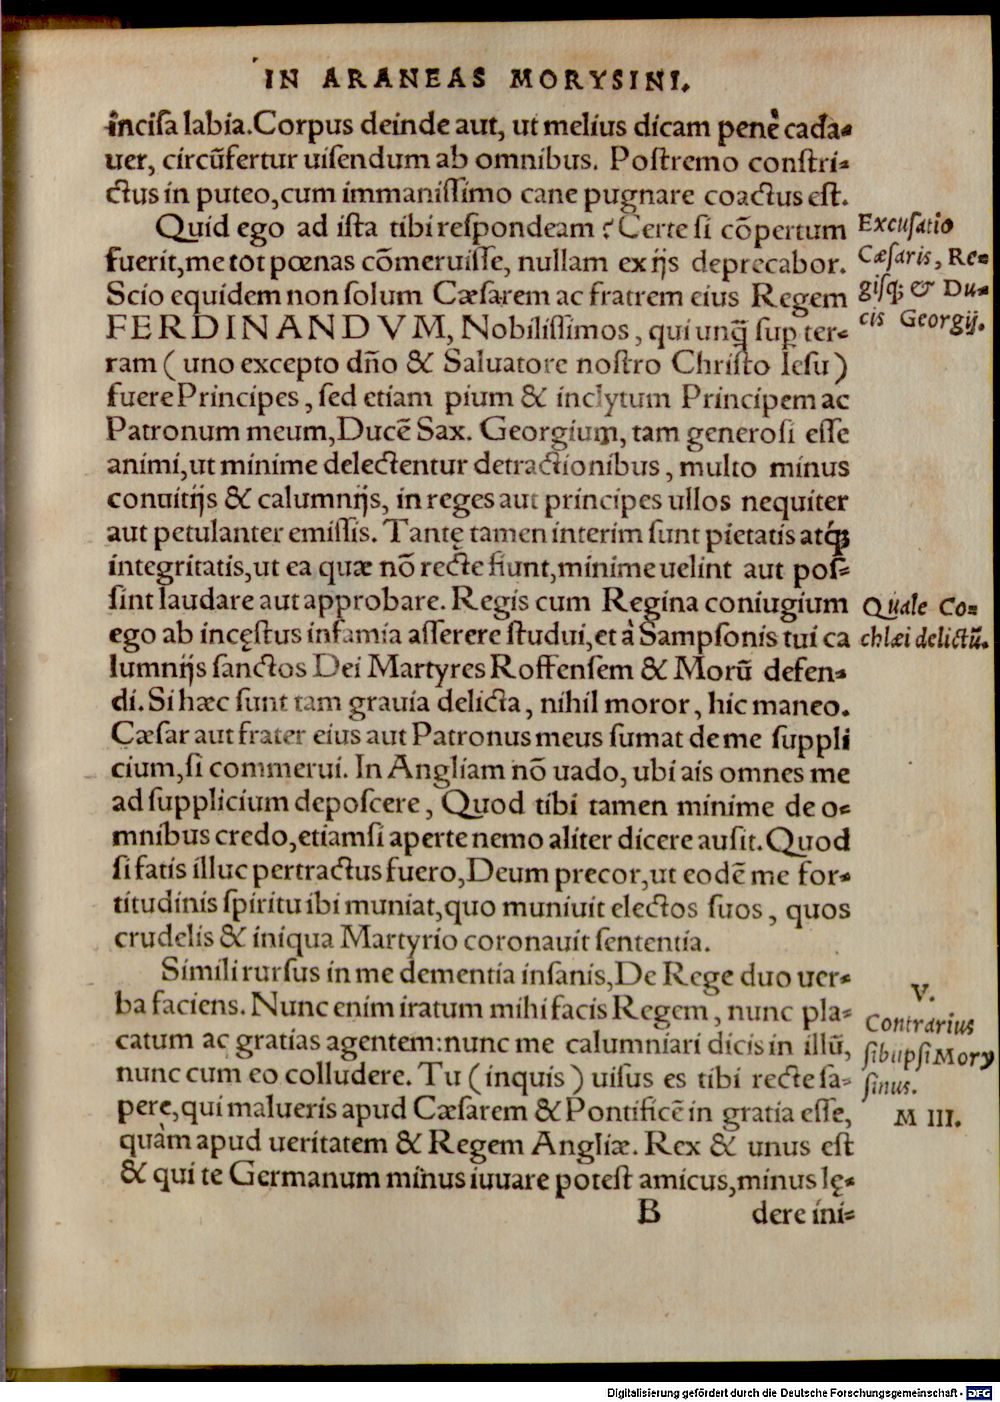 IN ARANEAS MORYSINI.
inciſa labia. Corpus deinde aut, ut melius dicam penè cada-
uer, circũfertur uiſendum ab omnibus. Poſtremo conſtri-
ctus in puteo, cum immaniſſimo cane pugnare coactus eſt.
Quid ego ad iſta tibi reſpondeam? Certe ſi cõpertum
fuerit, me tot pœnas cõmeruiſſe, nullam ex ijs deprecabor.
Scio equidem non ſolum Cæſarem ac fratrem eius Regem
FERDINANDVM, Nobiliſſimos, qui unq̃ ſuꝑ ter-
ram (uno excepto dño & Saluatore noſtro Chriſto Ieſu)
fuere Principes, ſed etiam pium & inclytum Principem ac
Patronum meum, Ducẽ Sax. Georgium, tam generoſi eſſe
animi, ut minime delectentur detractionibus, multo minus
conuitijs & calumnijs, in reges aut principes ullos nequiter
aut petulanter emiſſis. Tantę tamen interim ſunt pietatis atq́ꝫ
integritatis, ut ea quæ nõ recte fiunt, minime uelint aut poſ-
ſint laudare aut approbare. Regis cum Regina coniugium
ego ab incęſtus infamia aſſerere ſtudui, et à Sampſonis tui ca
lumnijs ſanctos Dei Martyres Roffenſem & Morũ defen-
di. Si hæc ſunt tam grauia delicta, nihil moror, hic maneo.
Cæſar aut frater eius aut Patronus meus ſumat de me ſuppli
cium, ſi commerui. In Angliam nõ uado, ubi ais omnes me
ad ſupplicium depoſcere, Quod tibi tamen minime de o-
mnibus credo, etiamſi aperte nemo aliter dicere auſit. Quod
ſi fatis illuc pertractus fuero, Deum precor, ut eodẽ me for-
titudinis ſpiritu ibi muniat, quo muniuit electos ſuos, quos
crudelis & iniqua Martyrio coronauit ſententia.
Simili rurſus in me dementia inſanis, De Rege duo uer-
ba faciens. Nunc enim iratum mihi facis Regem, nunc pla-
catum ac gratias agentem: nunc me calumniari dicis in illũ,
nunc cum eo colludere. Tu (inquis) uiſus es tibi recte ſa-
pere, qui malueris apud Cæſarem & Pontificẽ in gratia eſſe,
quàm apud ueritatem & Regem Angliæ. Rex & unus eſt
& qui te Germanum minus iuuare poteſt amicus, minus lę-
B dere ini-
Excuſatio
Cæſaris, Re-
giſqꝫ & Du-
cis Georgij.
Quale Co-
chlæi delictũ.
V.
Contrarius
ſibiipſi Mory
ſinus.
M III.
Digitalisierung gefördert durch die Deutsche Forschungsgemeinschaft - DFG